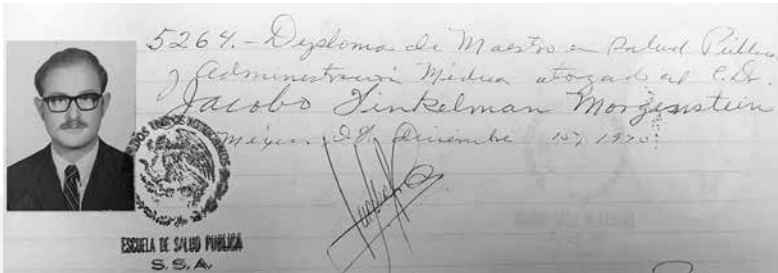 5264.- Dyploma de Maestro en Salud Pública
y Administración Médica otorgado al C. Dr.
Jacobo Finkelman Morgenstein
México D.F. Diciembre 15, 1970
ESTADOS UNIDOS MEXICANOS
ESCUELA DE SALUD PUBLICA
S.S.A.